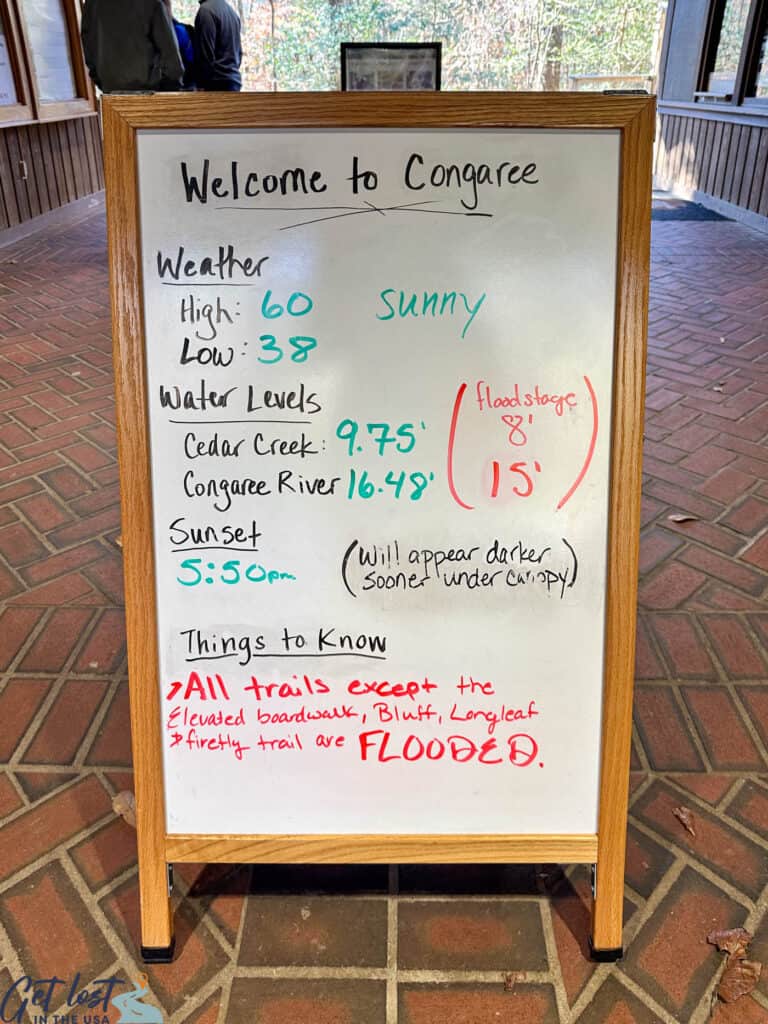 Welcome to Congaree
Weather
High: 60 sunny
Low: 38
Water Levels
flood stage
Cedar Creek: 9.75' 8'
Congaree River 16.48' 15'
Sunset
5:50pm (Will appear darker
sooner under canopy)
Things to Know
→All trails except the
Elevated boardwalk, Bluff, Longleaf
& firefly trail are FLOODED.
Get Lost
IN THE USA